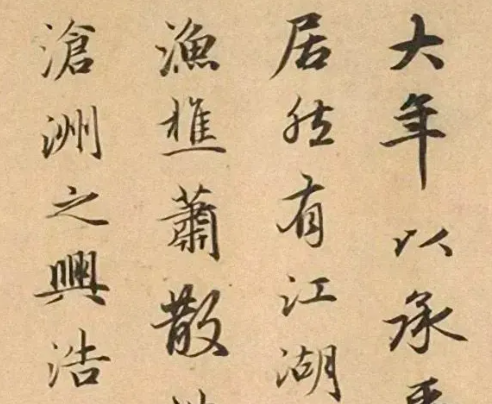 大年以承
居然有江湖
漁樵蕭散
滄洲之興浩